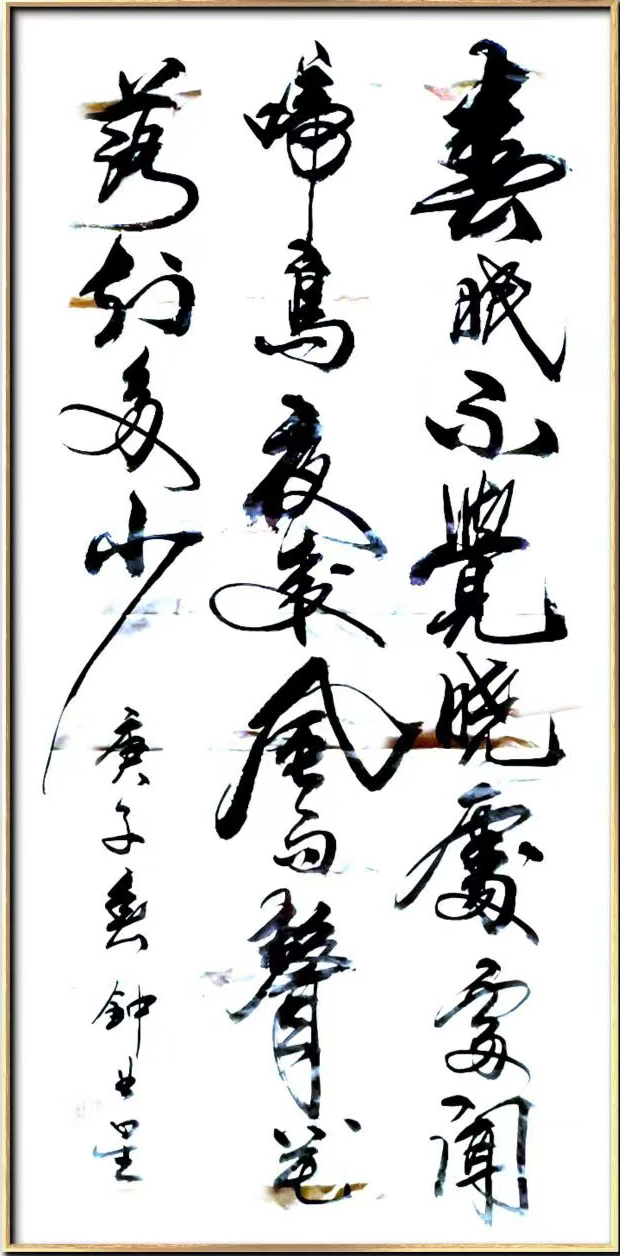 春眠不覺晓處處聞
啼鳥夜來風雨聲花
落知多少 庚子春 鈡 星